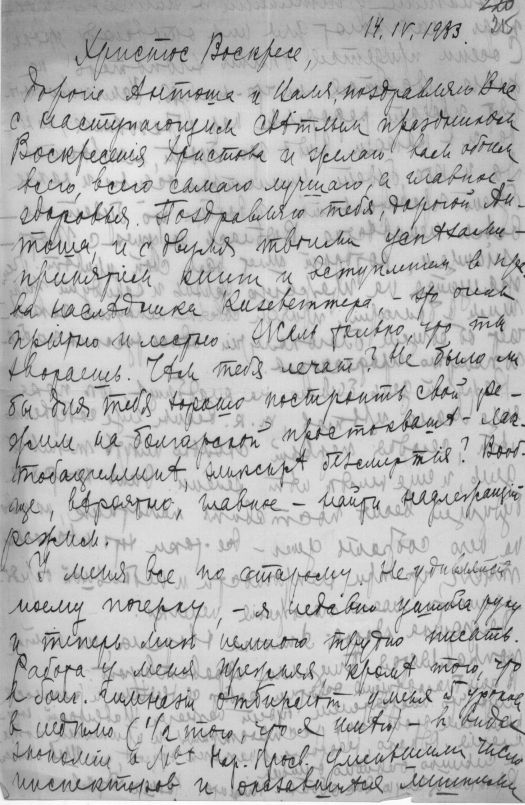 220
215
14. IV. 1933.
Христосъ Воскресе,
Дорогіе Антоша и Каля, поздравляю Васъ
с наступающим свѣтлым праздником
Воскресенія Христова и желаю вам обоим
всего, всего самаго лучшаго, а главное –
здоровья. Поздравляю тебя, дорогой Ан-
тоша, и с двумя твоими успѣхами –
принятіем книги и вступленіем в пра-
ва наслѣдника Кизеветтера, – это очень
пріятно и лестно. Жаль только, что ты
хвораешь. Чѣм тебя лечат? Не было ли
бы для тебя хорошо построить свой ре-
жим на болгарской простоквашѣ – лак-
тобациллинѣ, эликсирѣ безсмертія? Вооб-
ще вѣроятно, главное – найти надлежащій
режим.
У меня все по старому. Не удивляйся
моему почерку, – я недавно ушибла руку
и теперь мнѣ немного трудно писать.
Работа у меня прежняя кромѣ того, что
в болг. гимназіи отбирают у меня 5 уроков
в недѣлю (1/2 того, что я имѣю) – в видах
экономіи в М-вѣ Нар. Просв. уменьшили число
инспекторов и оказавшихся лишними